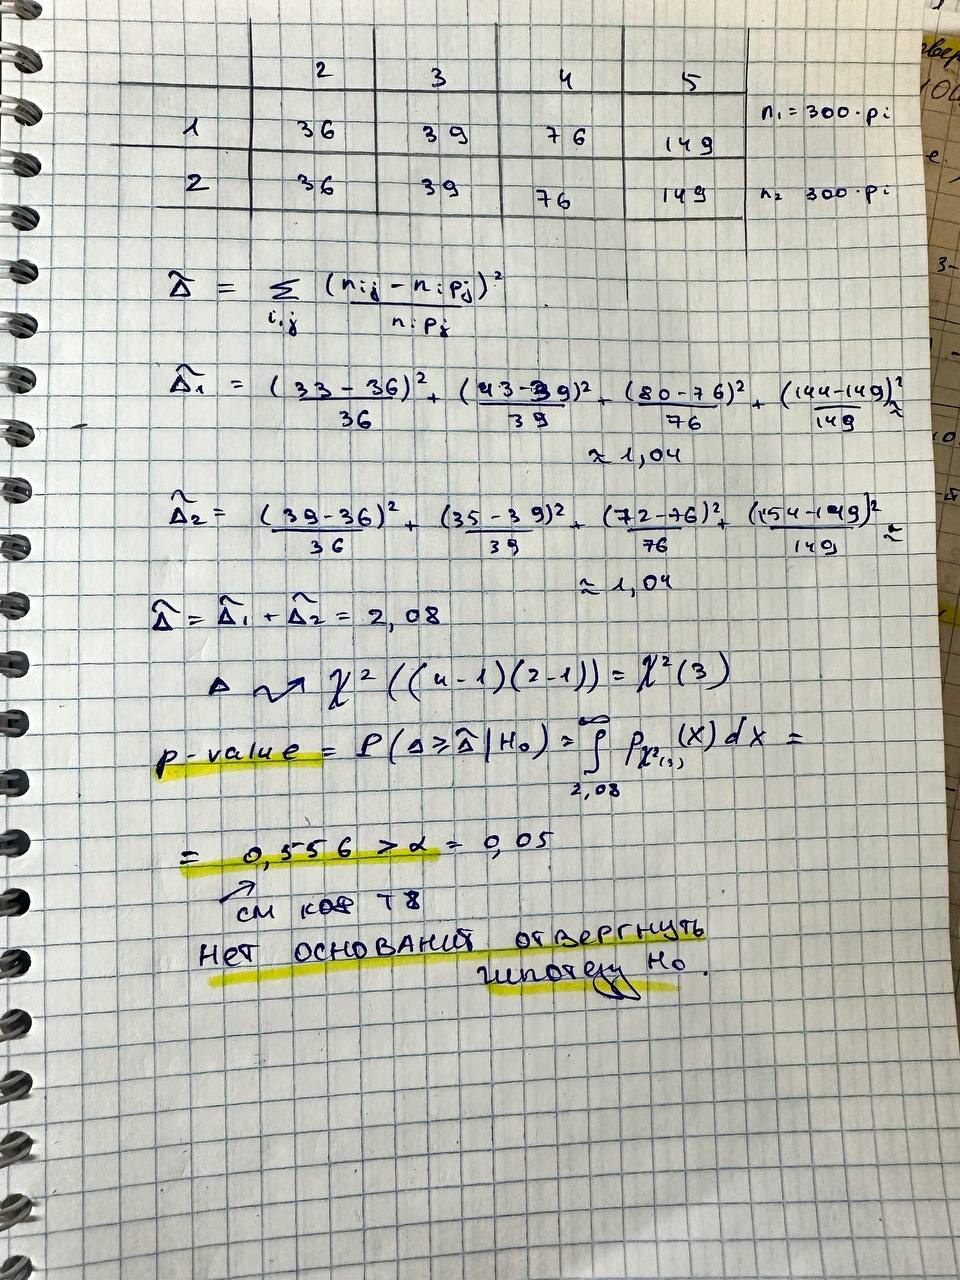 2 3 4 5
1 36 39 76 149 n₁ = 300·pi
2 36 39 76 149 n₂ 300·pi
Δ̂ = Σ i,j (nij - nipj)² / nipj
Δ̂₁ = (33-36)²/36 + (43-39)²/39 + (80-76)²/76 + (144-149)²/149 ≈
≈ 1,04
Δ̂₂ = (39-36)²/36 + (35-39)²/39 + (72-76)²/76 + (154-149)²/149 ≈
≈ 1,04
Δ̂ = Δ̂₁ + Δ̂₂ = 2,08
Δ ⇝ χ²((4-1)(2-1)) = χ²(3)
p-value = P(Δ ≥ Δ̂ | H₀) = ∫ 2,08 ∞ pχ²(3)(x) dx =
= 0,556 > α = 0,05
см код T8
Нет оснований отвергнуть
гипотезу H₀.